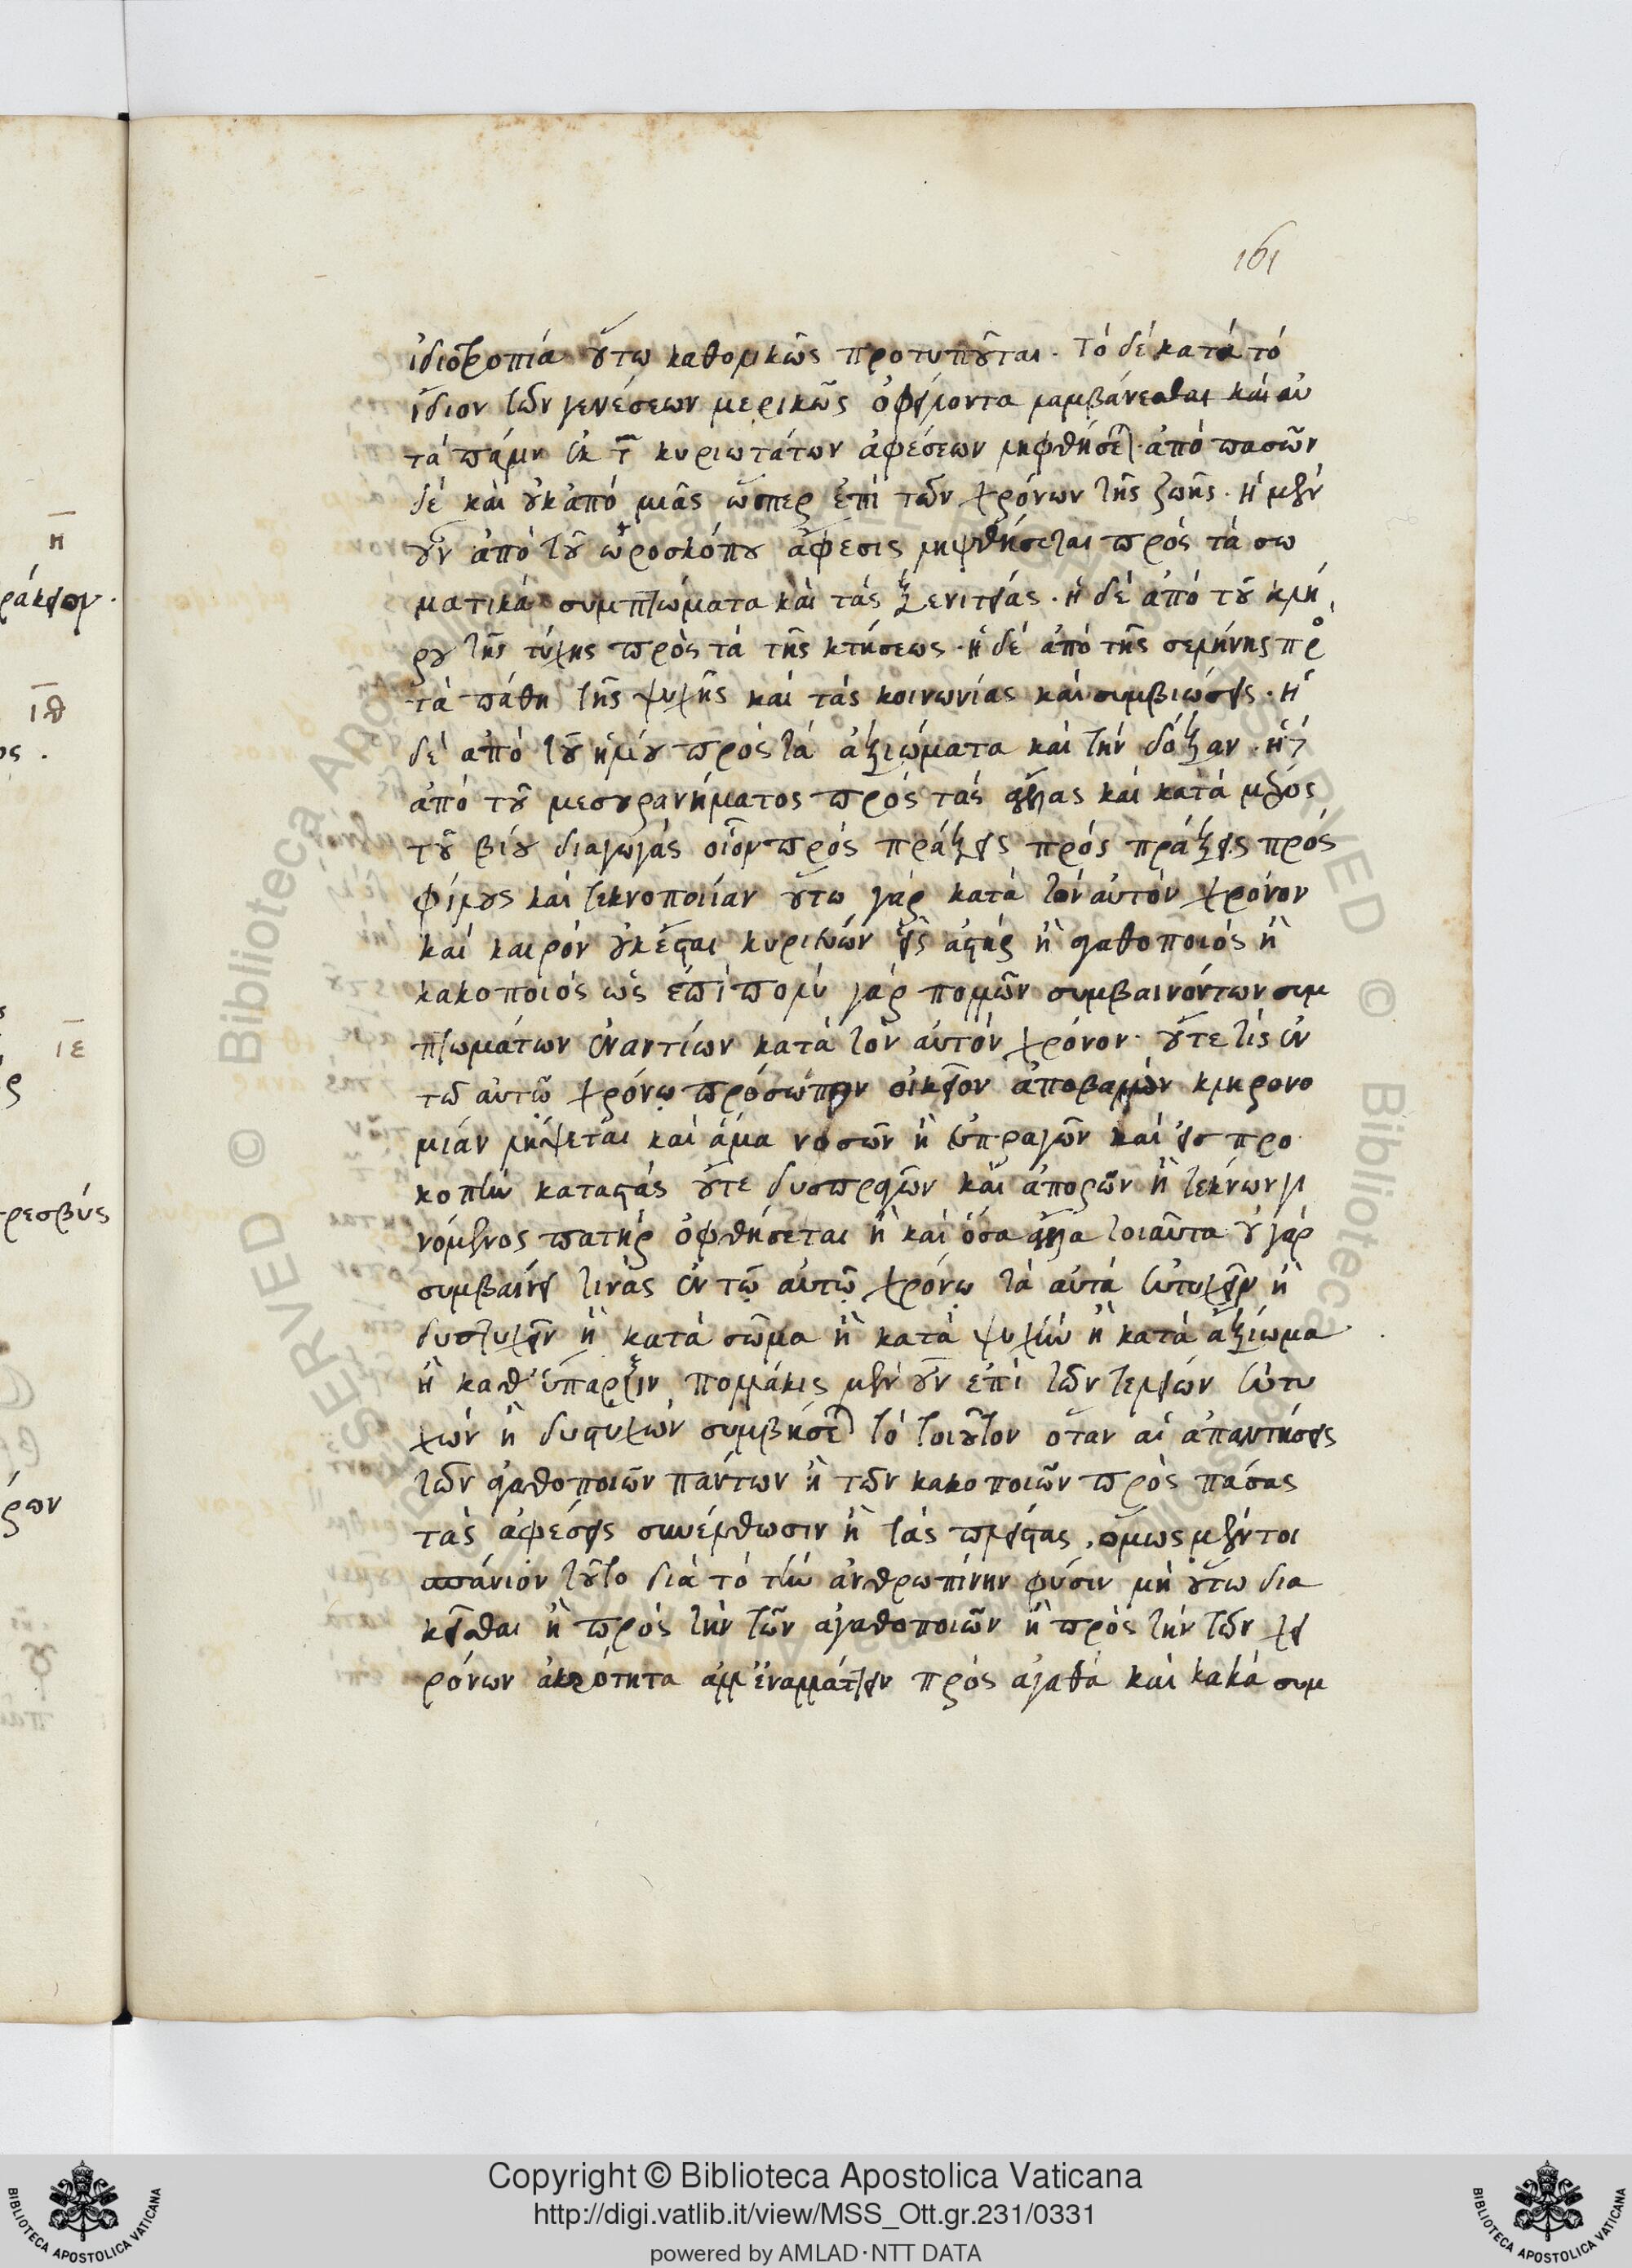 161
ἰδιοτροπία οὕτω καθολικῶς προτυποῦται· τὸ δὲ κατὰ τὸ
ἴδιον τῶν γενέσεων μερικῶς ὀφείλοντα λαμβάνεσθαι καὶ αὐ
τὰ πάλιν ἐκ τῶν κυριωτάτων ἀφέσεων ληφθήσεται· ἀπὸ πασῶν
δὲ καὶ οὐκ ἀπὸ μιᾶς ὥσπερ ἐπὶ τῶν χρόνων τῆς ζωῆς· ἡ μὲν
οὖν ἀπὸ τοῦ ὡροσκόπου ἄφεσις ληφθήσεται πρὸς τὰ σω
ματικὰ συμπτώματα καὶ τὰς ξενιτείας· ἡ δὲ ἀπὸ τοῦ κλή
ρου τῆς τύχης πρὸς τὰ τῆς κτήσεως· ἡ δὲ ἀπὸ τῆς σελήνης πρὸς
τὰ πάθη τῆς ψυχῆς καὶ τὰς κοινωνίας καὶ συμβιώσεις· ἡ
δὲ ἀπὸ τοῦ ἡλίου πρὸς τὰ ἀξιώματα καὶ τὴν δόξαν· ἡ δὲ
ἀπὸ τοῦ μεσουρανήματος πρὸς τὰς ἄλλας καὶ κατὰ μέρος
τοῦ βίου διαγωγὰς οἷον πρὸς πράξεις πρὸς πράξεις πρὸς
φίλους καὶ τεκνοποιίαν οὕτω γὰρ κατὰ τὸν αὐτὸν χρόνον
καὶ καιρὸν οὐκ ἔσται κυριεύων εἷς ἀστὴρ ἢ ἀγαθοποιὸς ἢ
κακοποιὸς ὡς ἐπὶ πολὺ γὰρ πολλῶν συμβαινόντων συμ
πτωμάτων ἐναντίων κατὰ τὸν αὐτὸν χρόνον· οὔτε τὶς ἐν
τῶ αὐτῷ χρόνῳ πρόσωπον οἰκεῖον ἀποβαλλὼν κληρονο
μίαν λήψεται καὶ ἅμα νοσῶν ἢ εὐπραγῶν καὶ εἰσ προ
κοπὴν καταστὰς οὔτε δυσπραγῶν καὶ ἀπορῶν ἢ τέκνων γι
νόμενος πατὴρ ὀφθήσεται ἢ καὶ ὅσα ἄλλα τοιαῦτα οὐ γὰρ
συμβαίνει τινὰς ἐν τῷ αὐτῷ χρόνῳ τὰ αὐτὰ εὐτυχεῖν ἢ
δυστυχεῖν ἢ κατὰ σῶμα ἢ κατὰ ψυχὴν ἢ κατὰ ἀξίωμα
ἢ καθ' ὕπαρξιν πολλάκις μὲν οὖν ἐπὶ τῶν τελείων εὐτυ
χῶν ἢ δυστυχῶν συμβήσεται τὸ τοιοῦτον ὅταν αἱ ἀπαντήσεις
τῶν ἀγαθοποιῶν πάντων ἢ τῶν κακοποιῶν πρὸς πάσας
τὰς ἀφέσεις συνέλθωσιν ἢ τὰς πλείστας, ὅμως μέντοι
σπάνιον τοῦτο διὰ τὸ τὴν ἀνθρωπίνην φύσιν μὴ οὕτω δια
κεῖσθαι ἢ πρὸς τὴν τῶν ἀγαθοποιῶν ἢ πρὸς τὴν τῶν χει
ρόνων ἀκρότητα ἀλλ' ἐναλλάττειν πρὸς ἀγαθὰ καὶ κακὰ συμ
η
ιθ
ιε
ρων
© Biblioteca Apostolica Vaticana
RESERVED
Copyright © Biblioteca Apostolica Vaticana
http://digi.vatlib.it/view/MSS_Ott.gr.231/0331
powered by AMLAD·NTT DATA
BIBLIOTECA APOSTOLICA VATICANA
BIBLIOTECA APOSTOLICA VATICANA